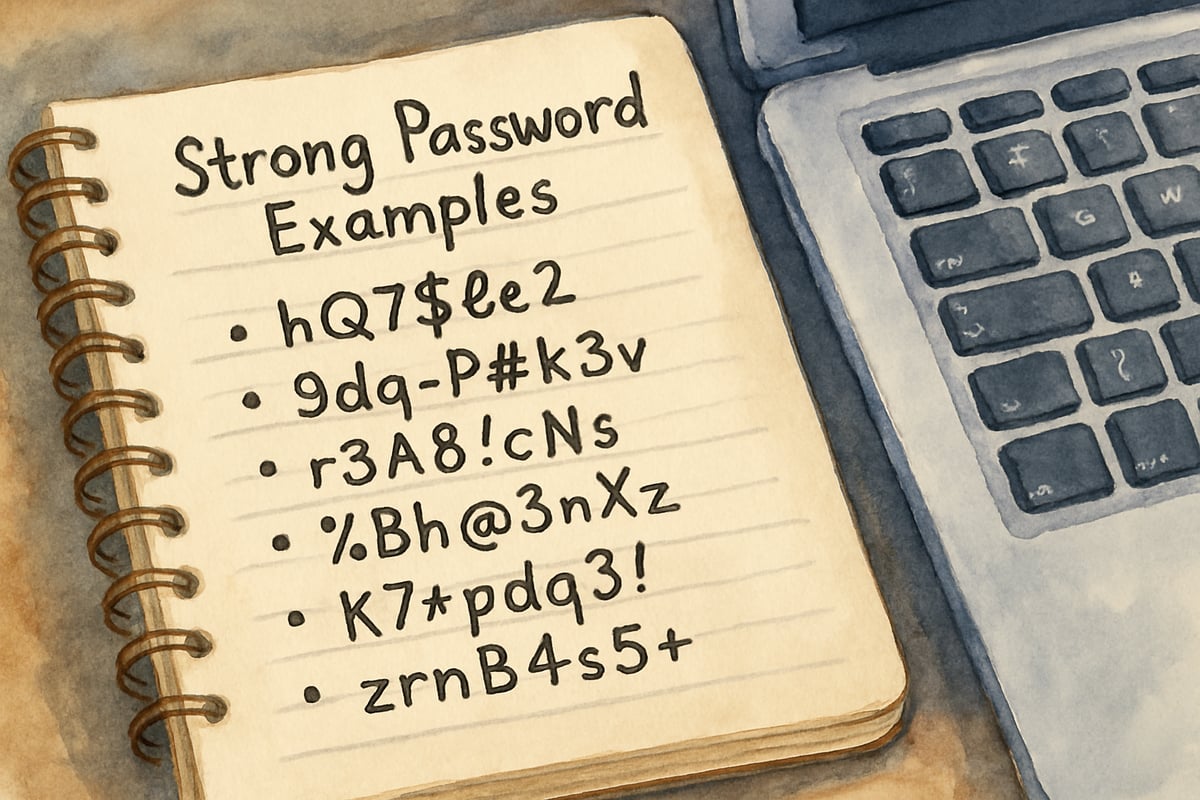 Strong Password
Examples
• hQ7$ℓe2
• 9dq-P#k3v
• r3A8!cNs
• %Bh@3nXz
• K7*pdq3!
• zrnB4s5+